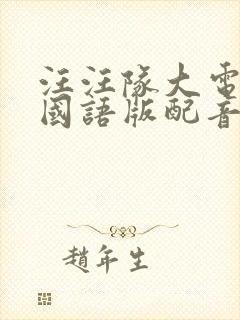 汪汪隊大電
國語版配音
趙年生